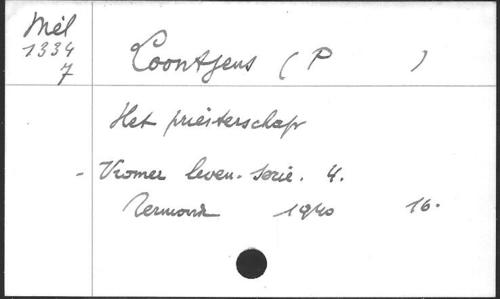 Mél
1334
7
Loontjens ( P )
Het priesterschap
- Vromer leven. serie. 4.
Roermond 1940 16.